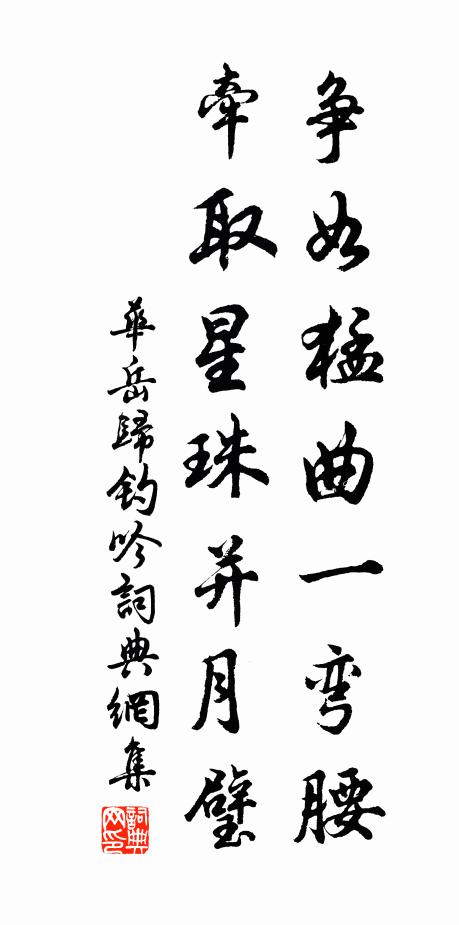 争如猛曲一弯腰
牵取星珠并月璧
華岳歸釣吟詞典網集
詞典
网印